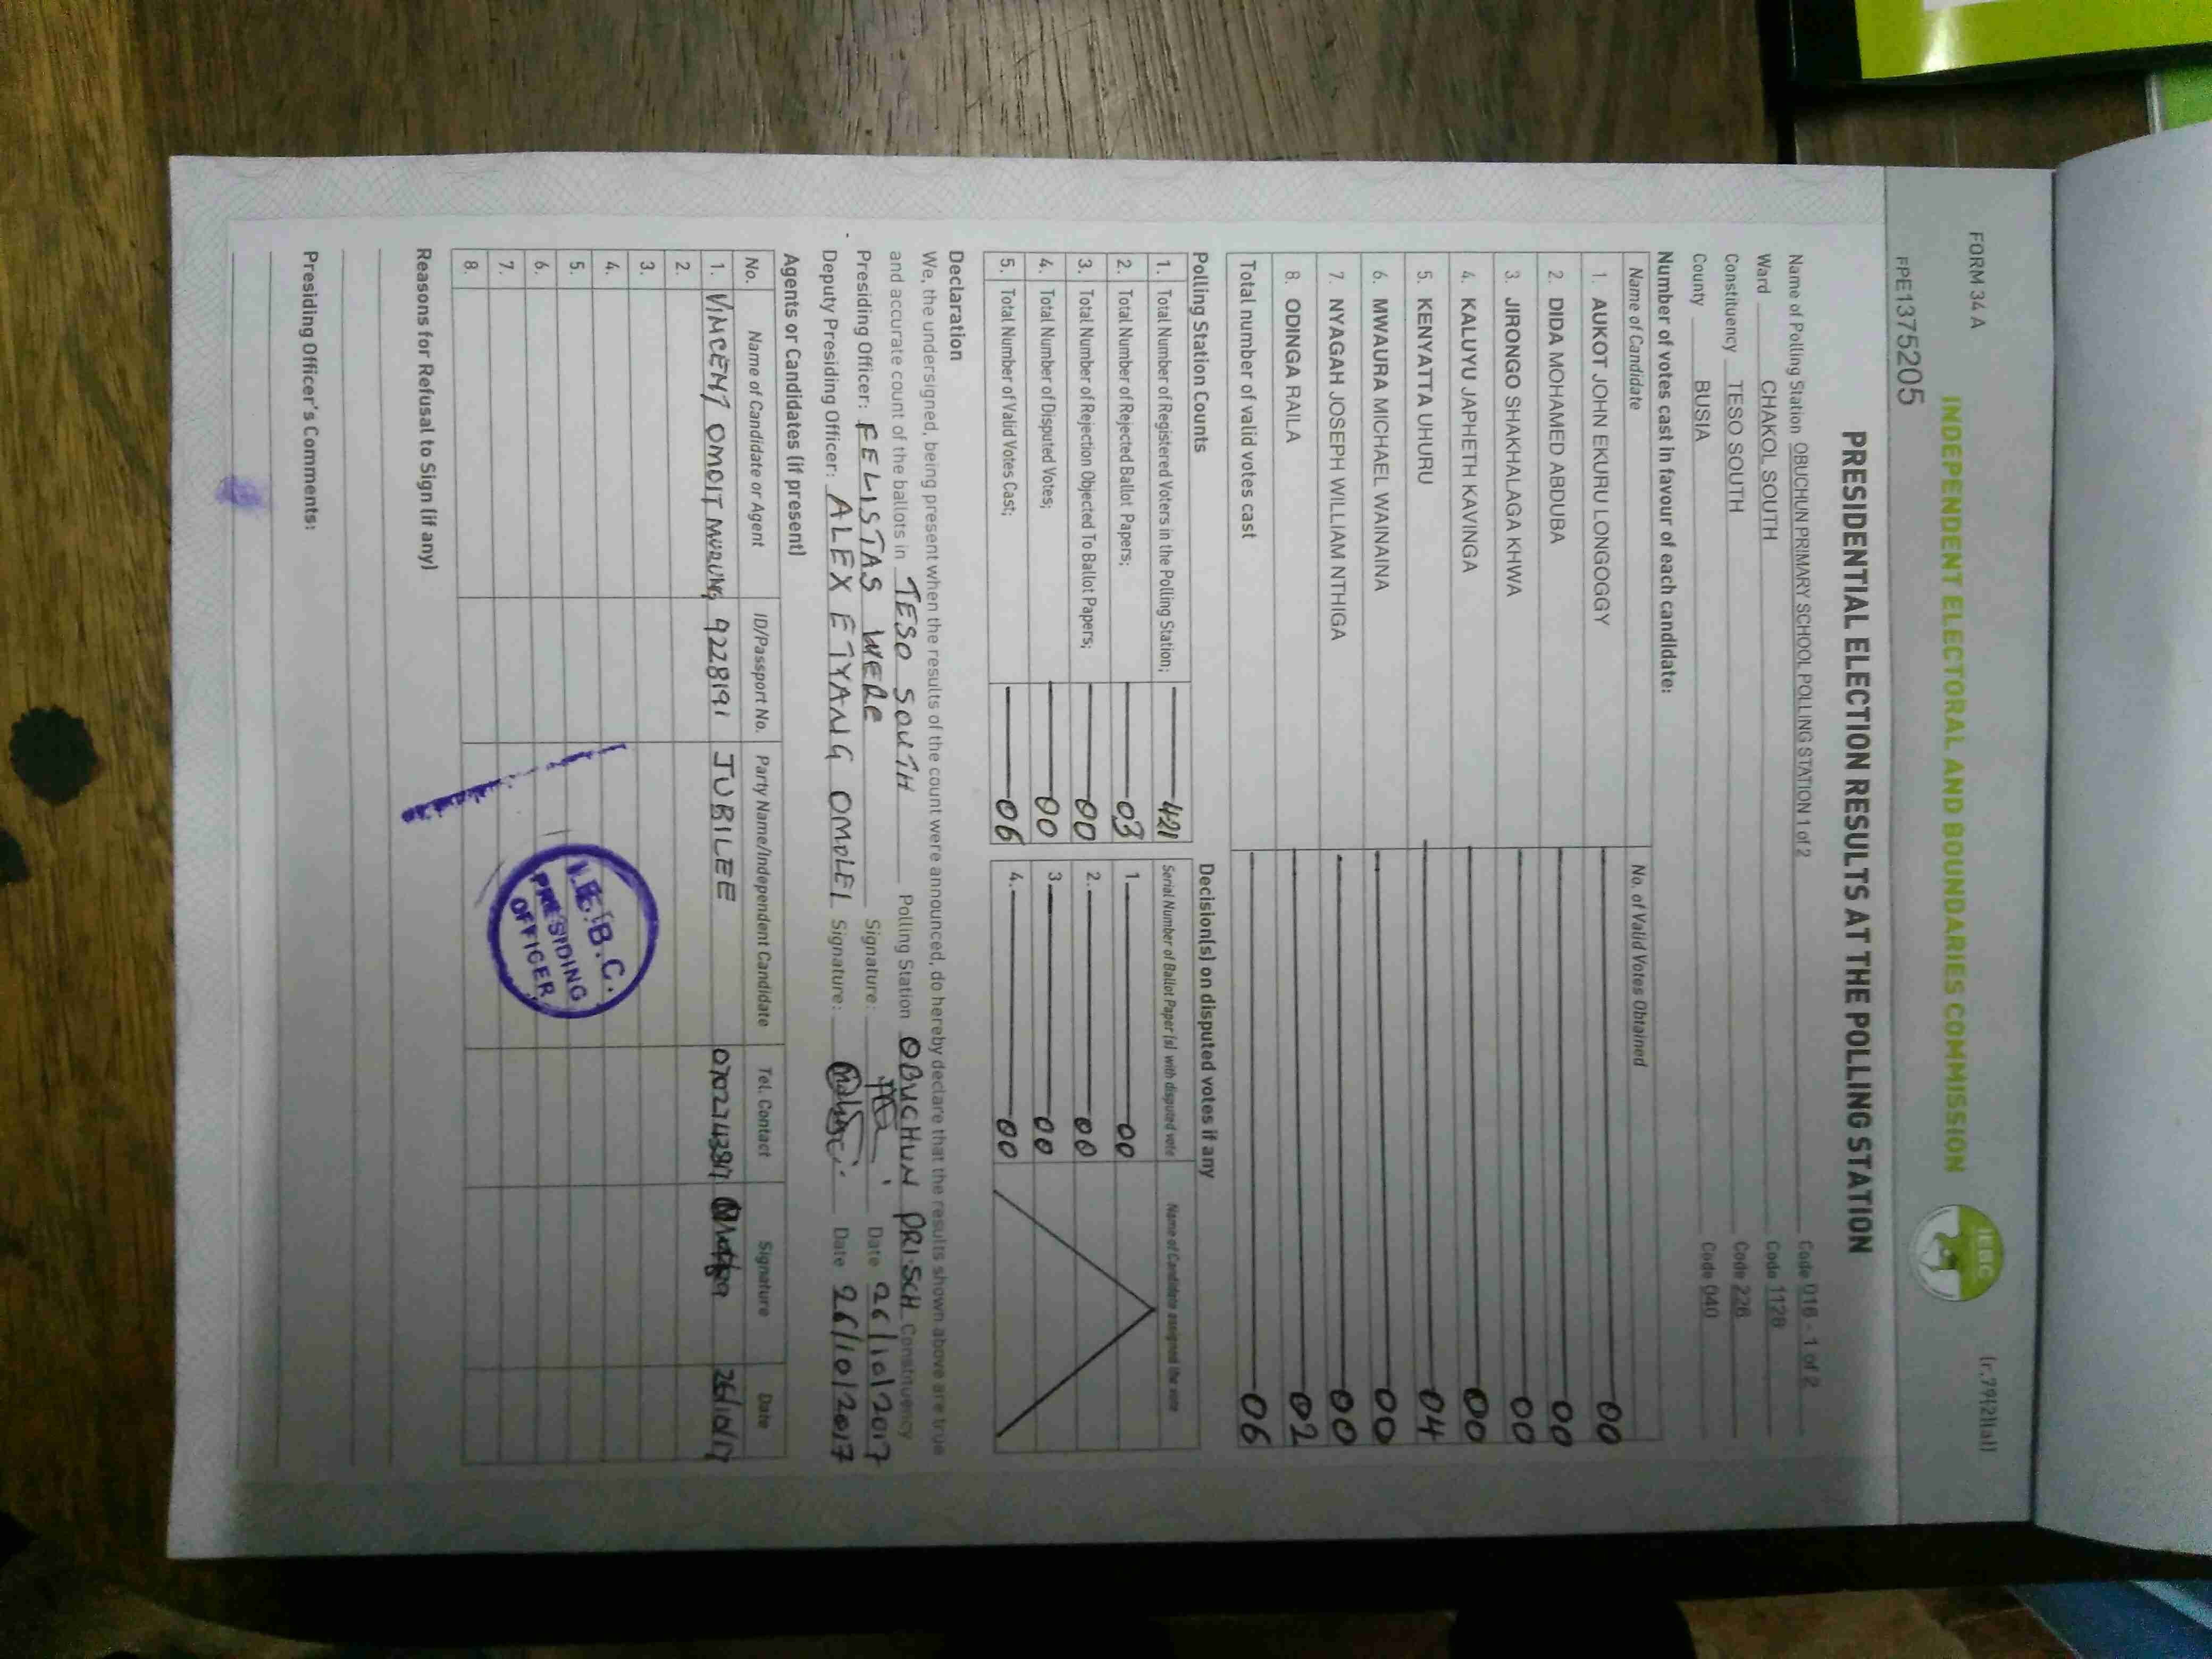 FORM 34 A
(r.79(2)(a))
INDEPENDENT ELECTORAL AND BOUNDARIES COMMISSION
IEBC
FPE1375205
PRESIDENTIAL ELECTION RESULTS AT THE POLLING STATION
Name of Polling Station OBUCHUN PRIMARY SCHOOL POLLING STATION 1 of 2 Code 016 - 1 of 2
Ward CHAKOL SOUTH Code 1128
Constituency TESO SOUTH Code 226
County BUSIA Code 040
Number of votes cast in favour of each candidate:
Name of Candidate No. of Valid Votes Obtained
1. AUKOT JOHN EKURU LONGOGGY 00
2. DIDA MOHAMED ABDUBA 00
3. JIRONGO SHAKHALAGA KHWA 00
4. KALUYU JAPHETH KAVINGA 00
5. KENYATTA UHURU 04
6. MWAURA MICHAEL WAINAINA 00
7. NYAGAH JOSEPH WILLIAM NTHIGA 00
8. ODINGA RAILA 02
Total number of valid votes cast 06
Polling Station Counts
1. Total Number of Registered Voters in the Polling Station; 421
2. Total Number of Rejected Ballot Papers; 03
3. Total Number of Rejection Objected To Ballot Papers; 00
4. Total Number of Disputed Votes; 00
5. Total Number of Valid Votes Cast; 06
Decision(s) on disputed votes if any
Serial Number of Ballot Paper(s) with disputed vote Name of Candidate assigned the vote
1. 00
2. 00
3. 00
4. 00
Declaration
We, the undersigned, being present when the results of the count were announced, do hereby declare that the results shown above are true
and accurate count of the ballots in TESO SOUTH Polling Station OBUCHUN PRI.SCH. Constituency
Presiding Officer: FELISTAS WERE Signature: Date 26/10/2017
Deputy Presiding Officer: ALEX ETYANG OMOLEI Signature: Date 26/10/2017
Agents or Candidates (if present)
No. Name of Candidate or Agent ID/Passport No. Party Name/Independent Candidate Tel. Contact Signature Date
1. VINCENT OMOIT 9228191 JUBILEE 26/10/17
2.
3.
4.
5.
6.
7.
8.
I.E.B.C.
PRESIDING
OFFICER
Reasons for Refusal to Sign (if any)
Presiding Officer's Comments: